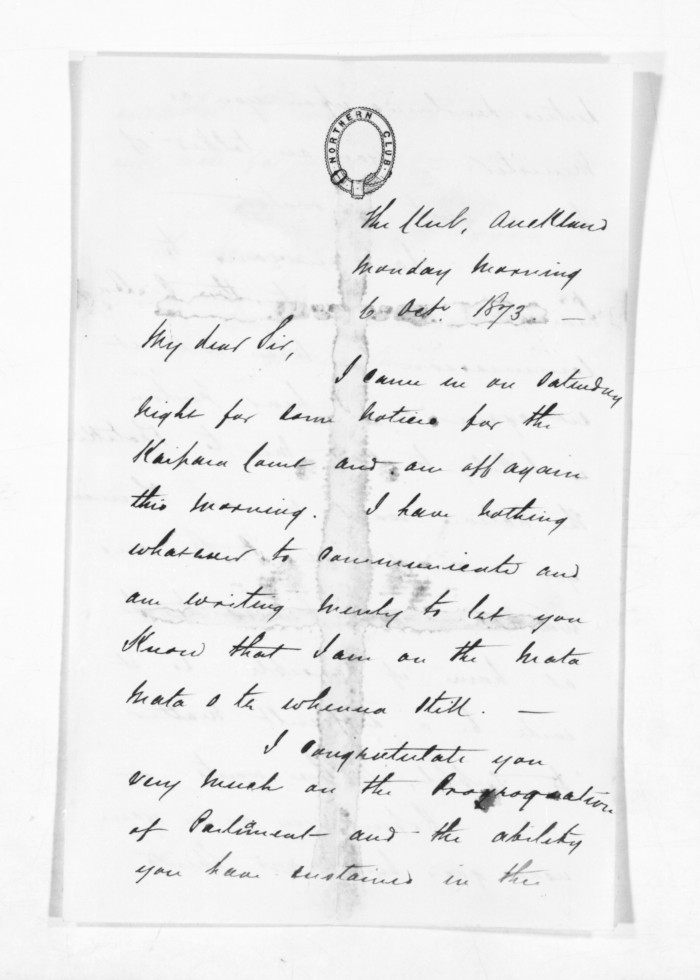 NORTHERN CLUB.
The Club, Auckland
Monday Morning
6 Octr 1873. —
My dear Sir,
I came in on Saturday
night for some notices for the
Kaipara Court and am off again
this morning. I have nothing
whatever to communicate and
am writing merely to let you
Know that I am on the mata
mata o te whenua still. —
I congratulate you
very much on the Prorogation
of Parliment and the ability
you have sustained in the